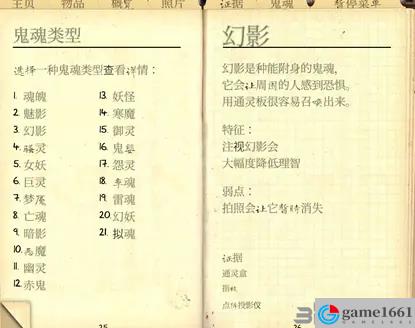 主页 物品 概览 照片 证据 鬼魂 暂停菜单
鬼魂类型
选择一种鬼魂类型查看详情:
1. 魂魄
2. 魅影
3. 幻影
4. 骚灵
5. 女妖
6. 巨灵
7. 梦魇
8. 亡魂
9. 暗影
10. 恶魔
11. 幽灵
12. 赤鬼
13. 妖怪
14. 寒魔
15. 御灵
16. 鬼婴
17. 怨灵
18. 孪魂
19. 雷魂
20. 幻妖
21. 拟魂
25
幻影
幻影是种能附身的鬼魂,
它会让周围的人感到恐惧。
用通灵板很容易召唤出来。
特征:
注视幻影会
大幅度降低理智
弱点:
拍照会让它暂时消失
证据
通灵盒
指纹
点阵投影仪
26
game1661